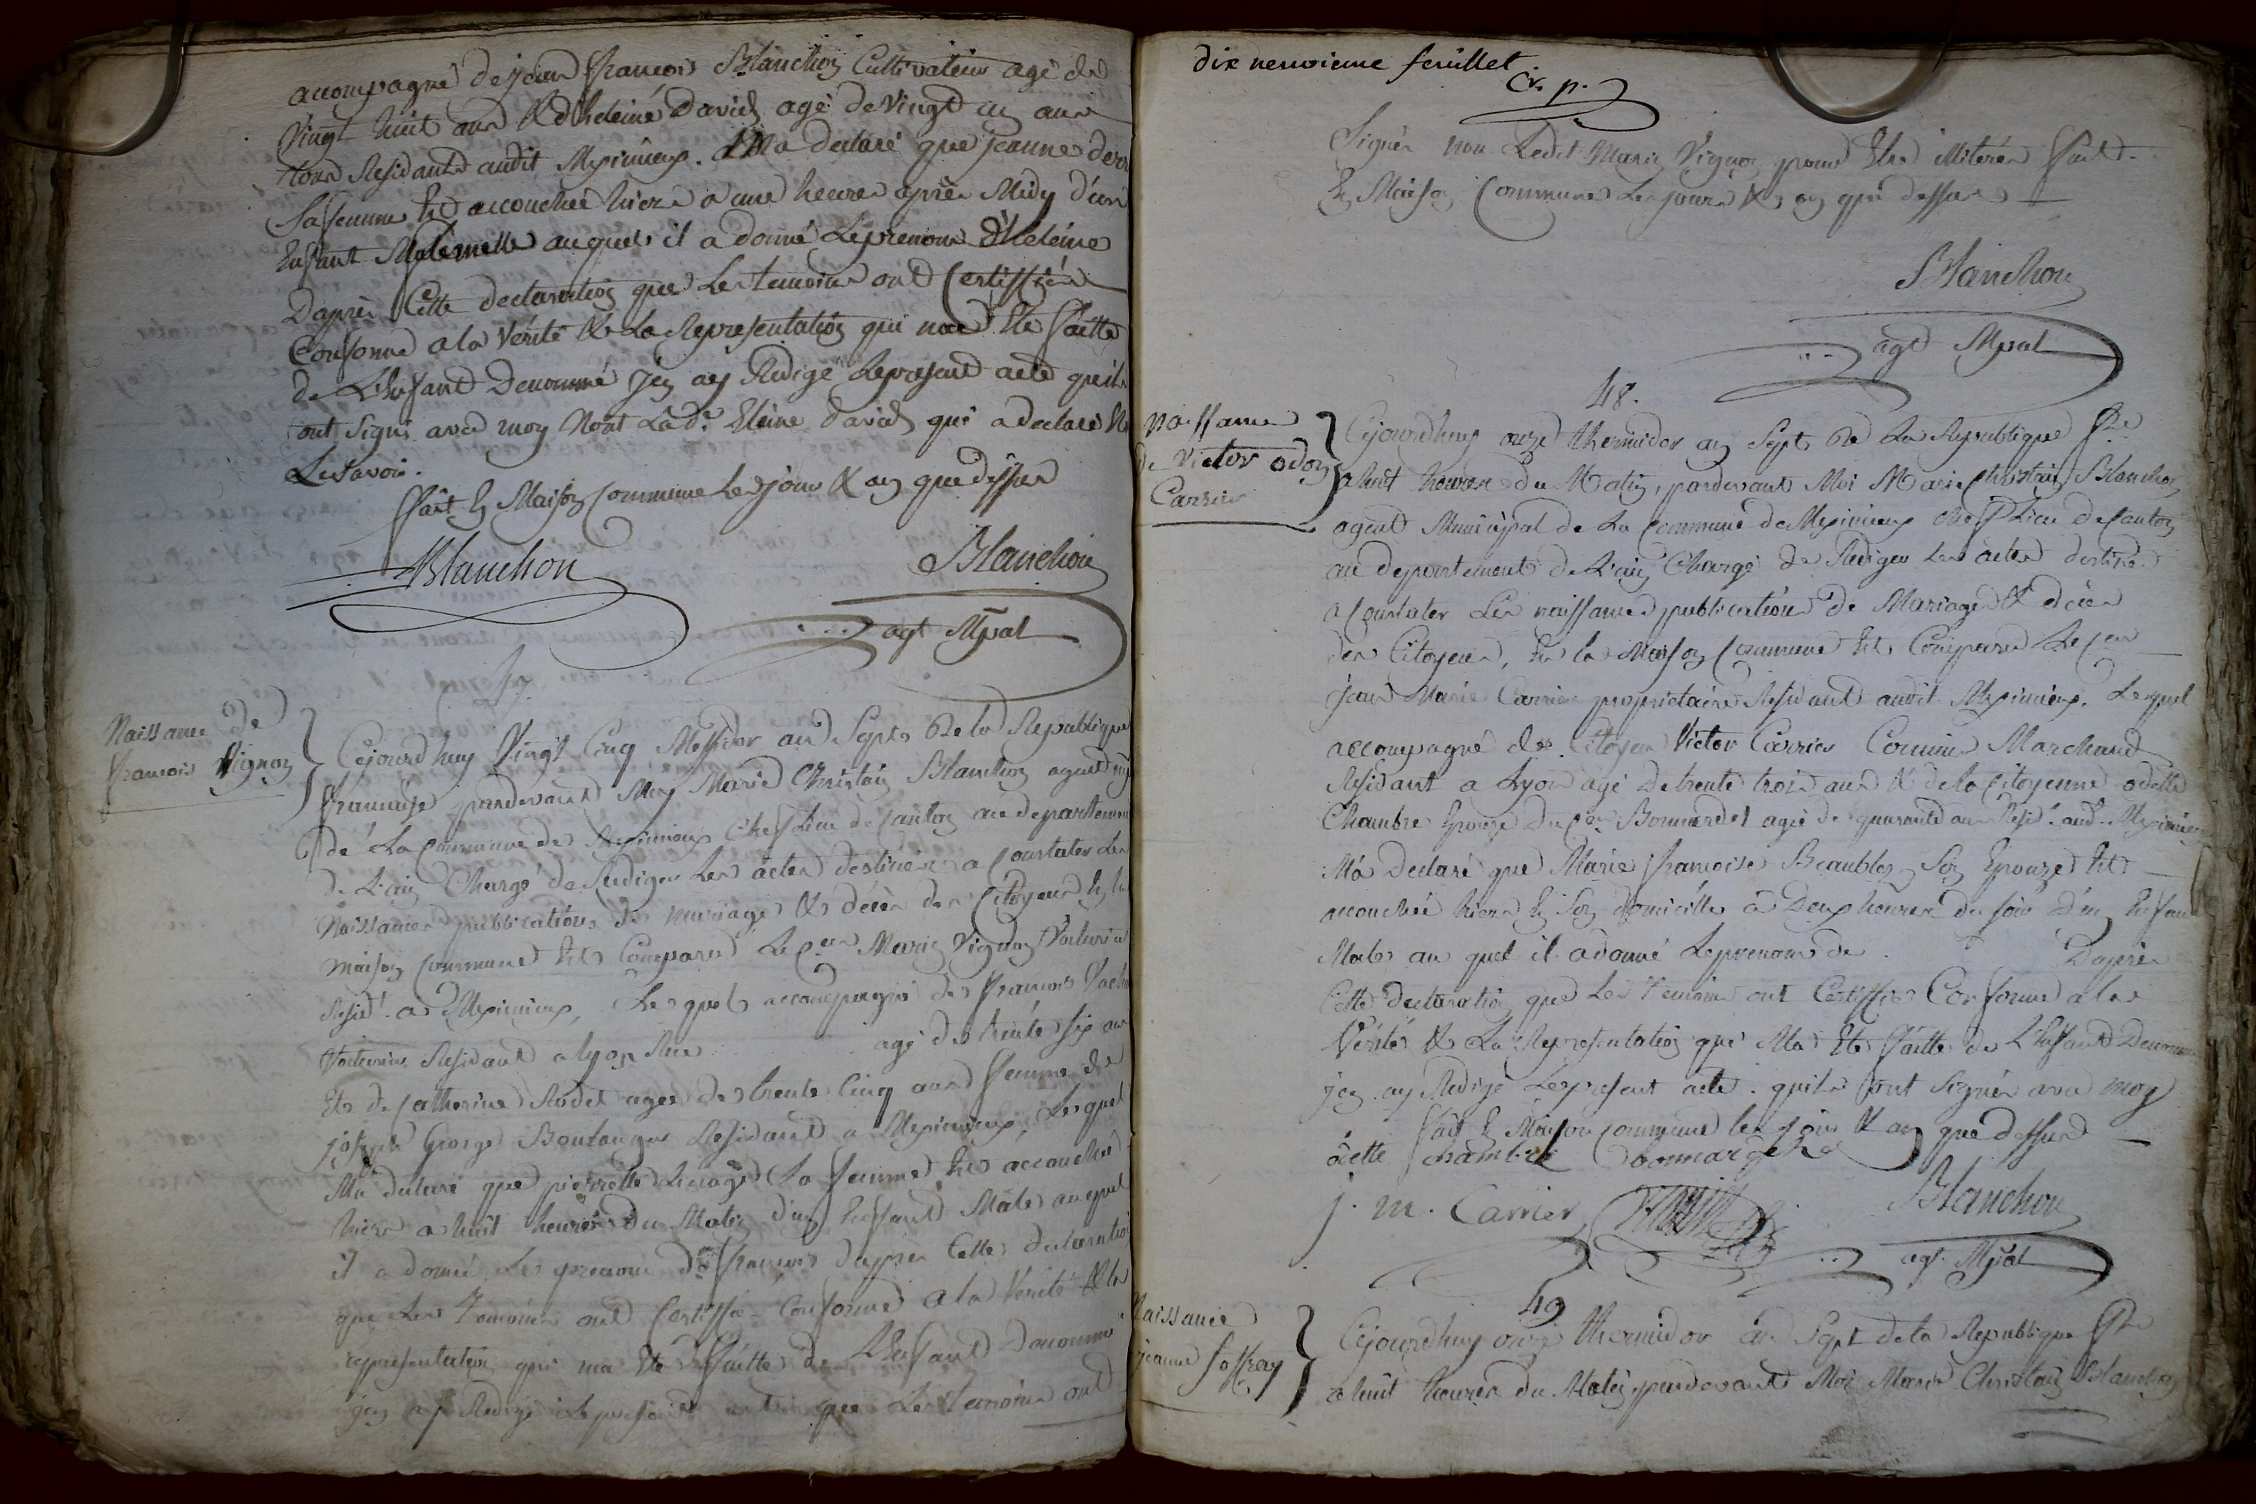 accompagné de jean francois Blanchon Cultivateur agé de
vingt huit ans & d'heleine David agé de vingt un ans
tous Residants audit Meximieux. M'a declaré que jeanne
sa femme Est accouchée hiere a une heures après Midy d'un
Enfant femelle auquel il a donné Le prenom d'heleine
Daprès Cette declaration que Les temoins ont Certiffiés
Conforme a la Vérité & La Representation qui nous Eté faitte
de L'Enfant Denommé j'en ay Redigé Le present acte qu'ils
ont Signé avec moy Non Lad.e Eleine david qui a declaré Ne
Le Savoir.
fait En Maison Commune Les jours & an que dessus
Blanchon
Blanchon
agt Mpal
47
Naissance de
francois Vignon
Cejourdhuy Vingt Cinq Messidor an Sept de la Republique
francaise pardevant Moy Marie Christain Blanchon agent
de La Commune de Meximieux Chef Lieu de Canton au departement
de L'ain Chargé de Rediger Les actes destinés a Constater Les
Naissances publications de mariage & décès des Citoyens En la
maison Commune Est Comparu Le C.en Marie Vignon Voiturier
Resid.t a Meximieux, Le quel accompagné de francois
Voiturier Residant a lyon Rue agé de trente six ans
Et de Catherine Rodet agée de trente Cinq ans femme de
joseph George Boulanger Residant a Meximieux, Le quel
Ma declaré que pierrette La femme Est accouchée
hiere a huit heures du Matin d'un Enfant Mâle auquel
il a donné Le prenom de francois daprès Cette declaration
que Les Temoins ont Certiffié Conforme a la Vérité & la
representation qui ma Eté faitte de L'Enfant Denommé
j'en ay Redigé le present acte que Les Temoins ont
dix neuvieme feuillet.
Cr. p.
Signés non Ledit Marie Vignon pour Etre illiteré fait
En Maison Commune Les jours & an que dessus
Blanchon
agt Mpal
48.
Naissance
de Victor odon
Carrier
Cejourdhuy onze thermidor an Sept de La Republique f.se
a huit heures du Matin, pardevant Moi Marie Christain Blanchon
agent Municipal de La Commune de Meximieux chef Lieu de Canton
au departement de L'ain Chargé de Rediger Les actes destiné
a Constater Les naissances publications de Mariage & décès
des Citoyens, En la Maison Commune Est Comparu Le C.en
jean Marie Carrier proprietaire Residant audit Meximieux. Le quel
accompagné de Citoyen Victor Carrier Commis Marchand
Residant a Lyon agé de trente trois ans & de la Citoyenne odette
Chambre Epouze du C.en Bommardet agée de quarante ans Resid.t aud.t Meximieux
Ma declaré que Marie francoise Son Epouze Est
accouchée hiere En Son domicille a Deux heures du soir d'un Enfant
Mâle au quel il a donné Le prenom de Daprès
Cette declaration que Les Temoins ont Certiffié Conforme a la
Vérité & La Representation qui Ma Eté faitte de L'Enfant Denommé
j'en ay Redigé Le present acte. qu'ils ont Signés avec moy
fait En Maison Commune les jour & an que dessus
odette chambre
j. m. Carrier
Blanchon
agt. Mpal
49
Naissance
jeanne
Cejourdhuy onze thermidor an Sept de la Republique f.se
a huit heures du Matin pardevant Moi Marie Christain Blanchon